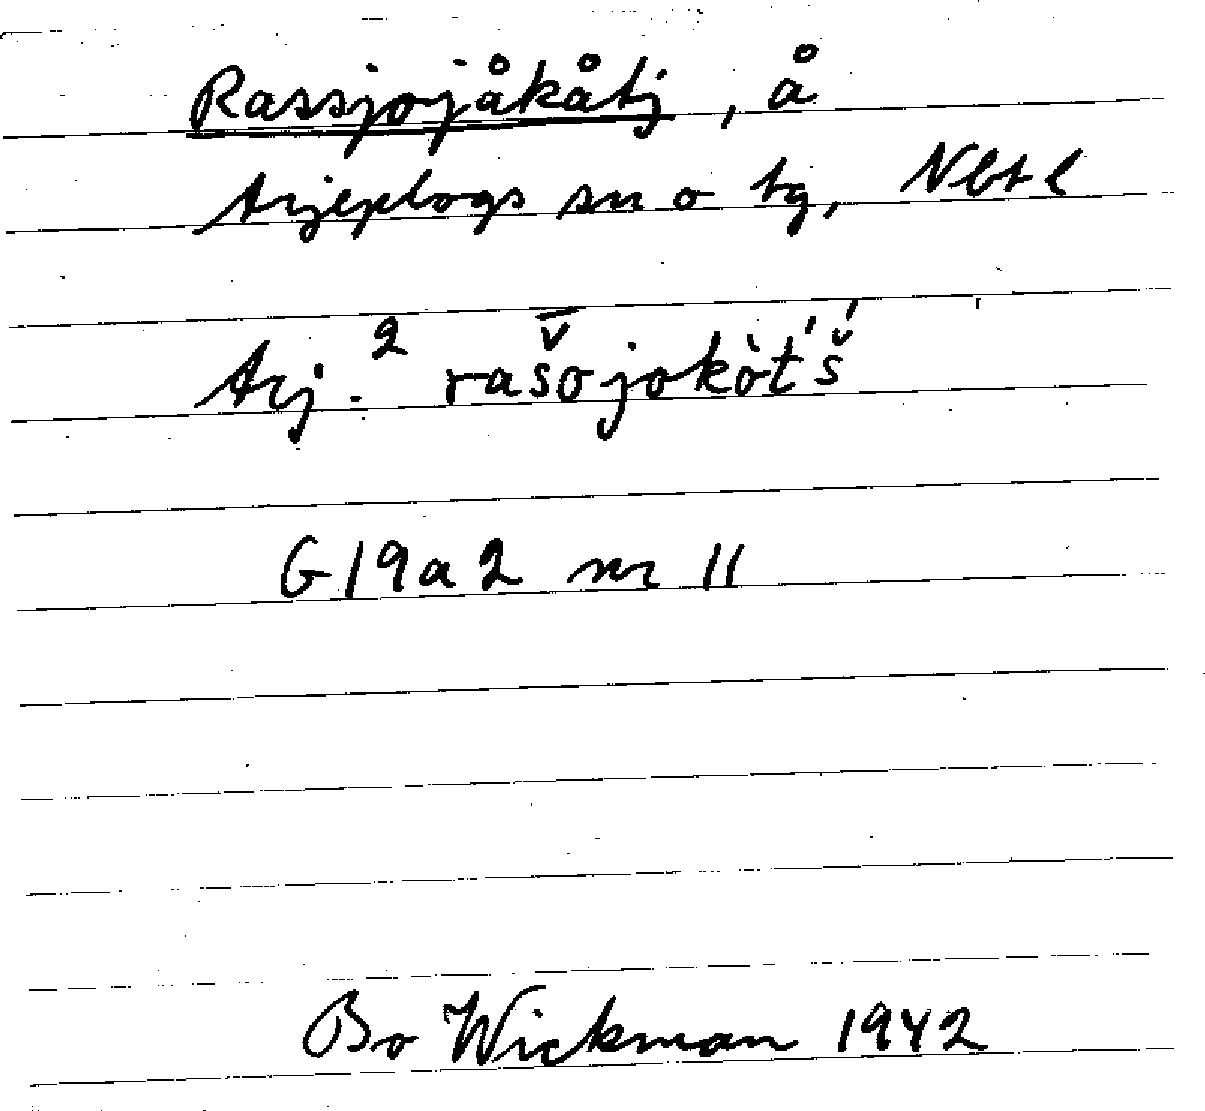 Rassjojåkåtj, å
Arjeplogs sn o tg, Nbtl
Arj.² raš̄ojokòt́'š́
G19a2 nr 11
Bo Wickman 1942